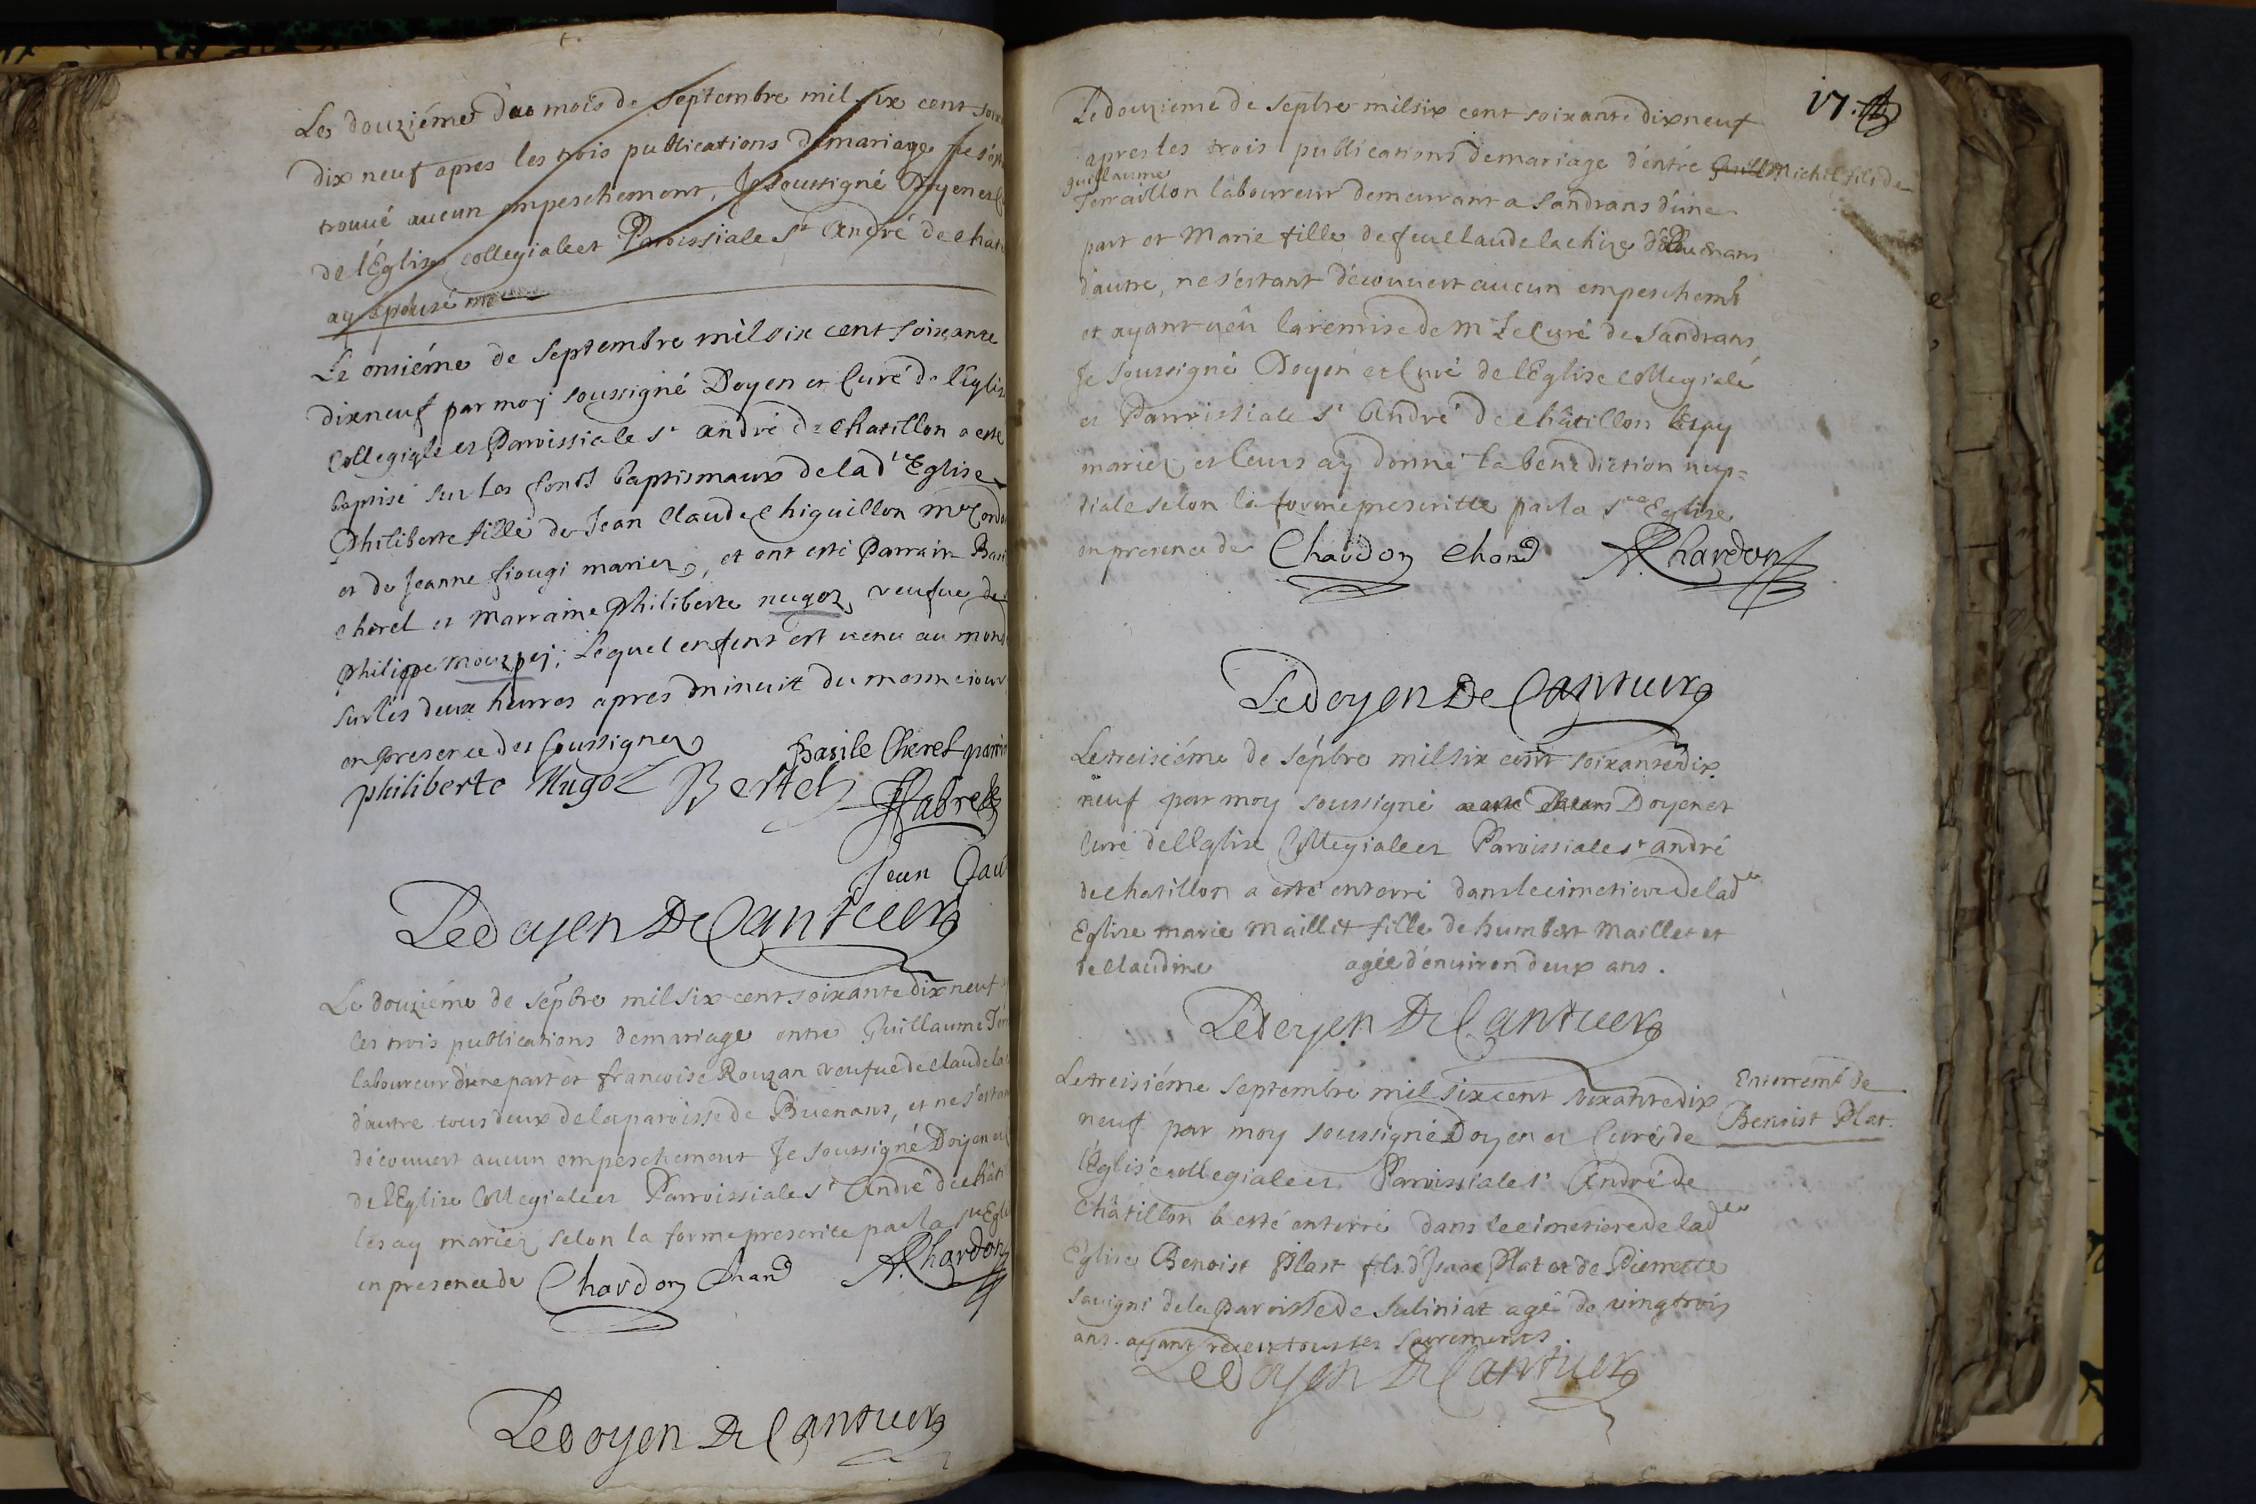 Le douziéme du mois de Septembre mil six cent soix
dix neuf apres les trois publications de mariage ne s'est
trouué aucun empeschement, Je soussigné Doyen et C
de l'Eglise collegiale et Paroissiale St André de chat
ay epousé me
Le onziéme de Septembre mil six cent soixante
dixneuf par moy soussigné Doyen et Curé de l'Eglise
Collegiale et Paroissiale St André de chatillon a esté
baptisé sur les fonts baptismaux de lad.te Eglise
Philiberte fille de Jean Claude Chiguillon Me Cord
et de Jeanne fiougi mariez, et ont esté Parrain Basi
cherel et Marraine Philiberte nugoz, veufue de
Philippe ; Lequel enfans est venu au monde
sur les deux heures apres minuit du mesme iour
en presence des soussignez
Basile Cherel parrin
philiberte Nugoz Bertet
Jean Clau
Le doyen De Cantuerz
Le douziéme de Sepbre mil six cent soixante dix neuf
les trois publications de mariage entre Guillaume Terr
laboureur d'une part et francoise Rouzan veufue de claude la
d'autre tous deux de la paroisse de Buenans, et ne s'estant
découuert aucun empeschement Je soussigné Doyen et C
de l'Eglise Collegiale et Parroissiale St André de châti
les ay mariez selon la forme prescrite par la Ste Egli
en presence de Chardon Chand A. Chardon
Le doyen De Cantuerz
17.
Le douzieme de Sepbre mil six cent soixante dixneuf
apres les trois publications de mariage d'entre Guill Michel fils de
guillaume
Terraillon laboureur demeurant a Sandrans d'une
part et Marie fille de feu Claude la chize de Buenans
d'autre, ne s'estant découuert aucun empeschemt
et ayant veü la remise de Mr Le Curé de Sandrans
Je soussigné Doyen et Curé de l'Eglise collegiale
et Parroissiale St André de châtillon les ay
mariez et leurs ay donné la benediction nup=
tiale selon la forme prescritte par la Ste Eglise
en presence de Chardon Chand A. Chardon
Le doyen De Cantuerz
Le treisiéme de Sepbre mil six cent soixante dix
neuf par moy soussigné Doyen et
Curé de l'Eglise Collegiale et Paroissiale St André
de chatillon a esté enterré dans le cimetiere de lad.te
Eglise marie Maillet fille de humbert Maillet et
de Claudine agée d'enuiron deux ans.
Le doyen De Cantuerz
Le treisiéme Septembre mil six cent soixante dix
neuf par moy soussigné Doyen et Curé de
l'Eglise collegiale et Paroissiale St André de
Châtillon a esté enterré dans le cimetiere de lad.te
Eglise Benoist Plat fils d'Isaac Plat et de Pierrette
Sauigni de la Paroisse de Suliniat agé de vingt trois
ans. ayant receu tous les sacrements.
Le doyen De Cantuerz
Enterremt de
Benoist Plat.